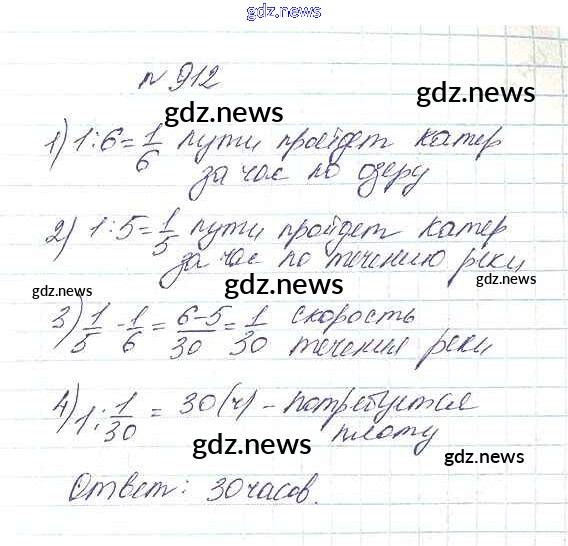 gdz.news
№ 912
gdz.news
gdz.news
1) 1:6=1/6 пути пройдет катер
за час по озеру
gdz.news
2) 1:5=1/5 пути пройдет катер
за час по течению реки
gdz.news
gdz.news
gdz.news
3) 1/5 - 1/6 = 6-5/30 = 1/30 скорость
течения реки
gdz.news
gdz.news
4) 1:1/30 = 30(ч) - потребуется
плоту
gdz.news
gdz.news
Ответ: 30 часов.
gdz.news